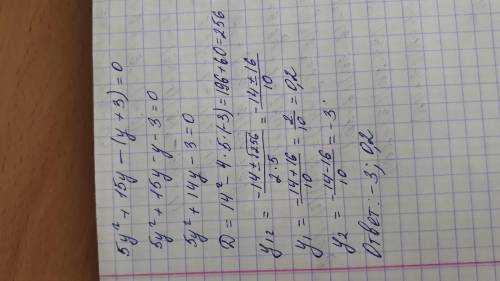 5y² + 15y - (y + 3) = 0
5y² + 15y - y - 3 = 0
5y² + 14y - 3 = 0
D = 14² - 4 · 5 · (-3) = 196 + 60 = 256
y₁₂ = (-14 ± √256)/(2·5) = (-14 ± 16)/10
y₁ = (-14+16)/10 = 2/10 = 0,2
y₂ = (-14-16)/10 = -3
Ответ: -3; 0,2